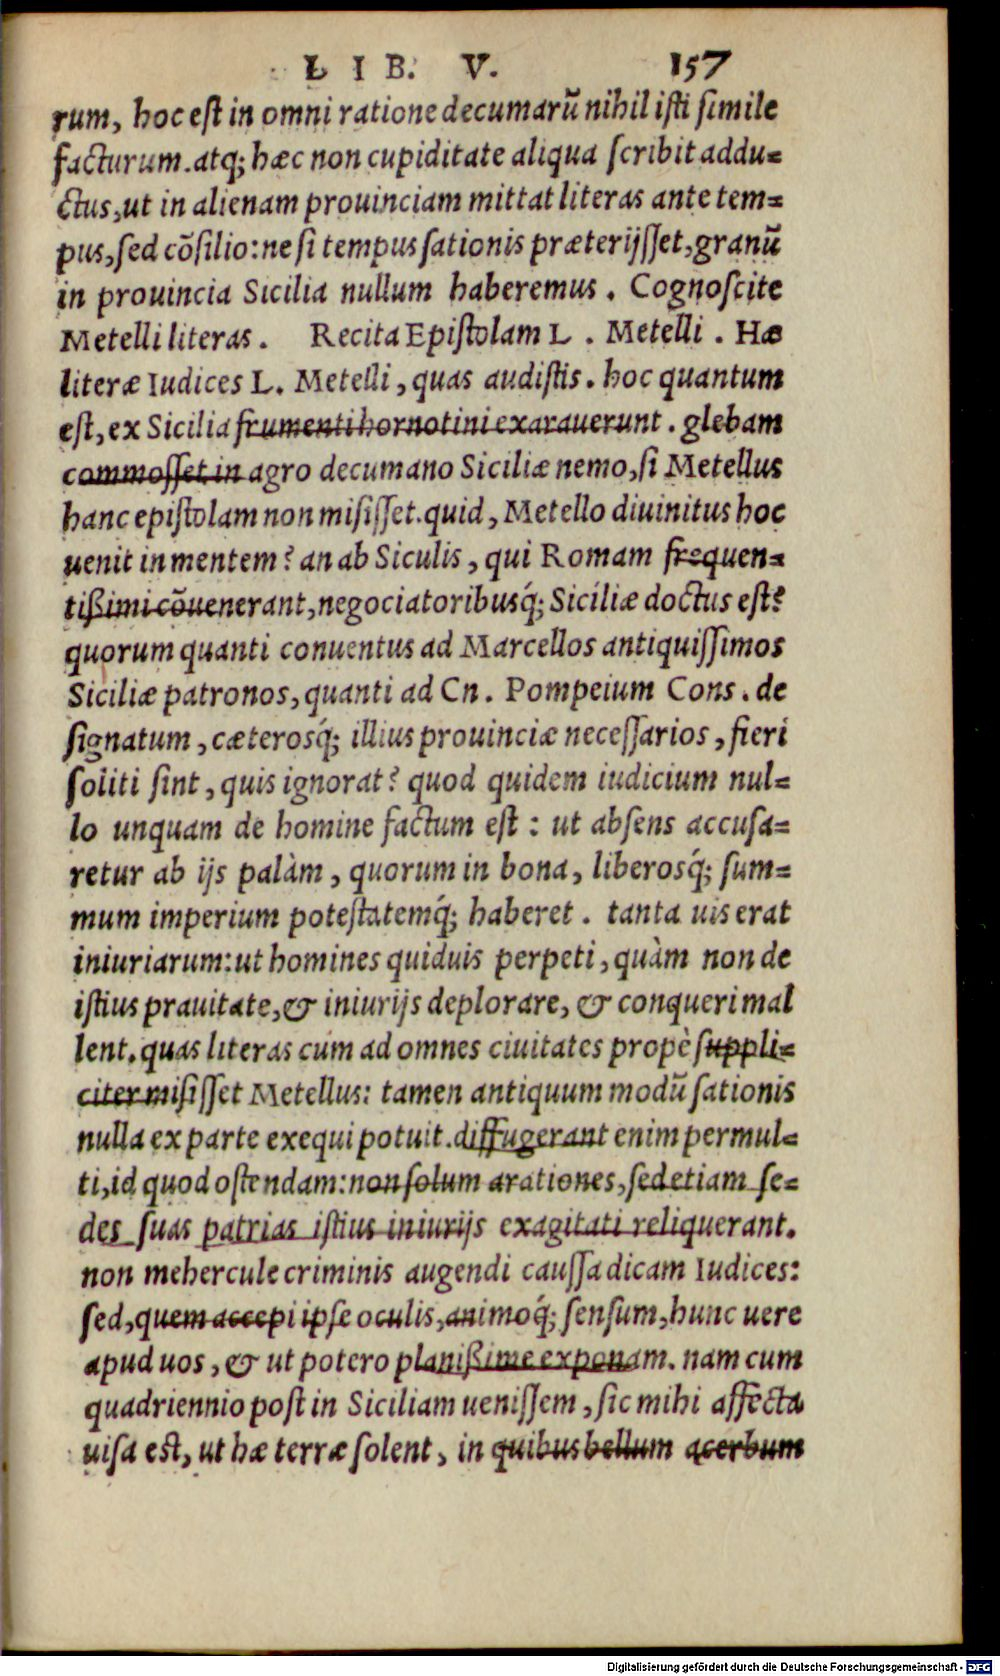 LIB. V. 157
rum, hoc est in omni ratione decumarũ nihil isti simile
facturum. atq; hæc non cupiditate aliqua scribit addu=
ctus, ut in alienam prouinciam mittat literas ante tem=
pus, sed cõsilio: ne si tempus sationis præterijsset, granũ
in prouincia Sicilia nullum haberemus. Cognoscite
Metelli literas. Recita Epistolam L. Metelli. Hæ
literæ Iudices L. Metelli, quas audistis. hoc quantum
est, ex Sicilia frumenti hornotini exarauerunt. glebam
commosset in agro decumano Siciliæ nemo, si Metellus
hanc epistolam non misisset. quid, Metello diuinitus hoc
uenit in mentem? an ab Siculis, qui Romam frequen=
tißimi cõuenerant, negociatoribusq́; Siciliæ doctus est?
quorum quanti conuentus ad Marcellos antiquissimos
Siciliæ patronos, quanti ad Cn. Pompeium Cons. de
signatum, cæterosq́; illius prouinciæ necessarios, fieri
soliti sint, quis ignorat? quod quidem iudicium nul=
lo unquam de homine factum est: ut absens accusa=
retur ab ijs palàm, quorum in bona, liberosq́; sum=
mum imperium potestatemq́; haberet. tanta uis erat
iniuriarum: ut homines quiduis perpeti, quàm non de
istius prauitate, & iniurijs deplorare, & conqueri mal
lent. quas literas cùm ad omnes ciuitates propè suppli=
citer misisset Metellus: tamen antiquum modũ sationis
nulla ex parte exequi potuit. diffugerant enim permul=
ti, id quod ostendam: non solum arationes, sed etiam se=
des suas patrias istius iniurijs exagitati reliquerant.
non mehercule criminis augendi caussa dicam Iudices:
sed, quem accepi ipse oculis, animoq́; sensum, hunc uere
apud uos, & ut potero planißime exponam. nam cum
quadriennio post in Siciliam uenissem, sic mihi affecta
uisa est, ut hæ terræ solent, in quibus bellum acerbum
Digitalisierung gefördert durch die Deutsche Forschungsgemeinschaft - DFG